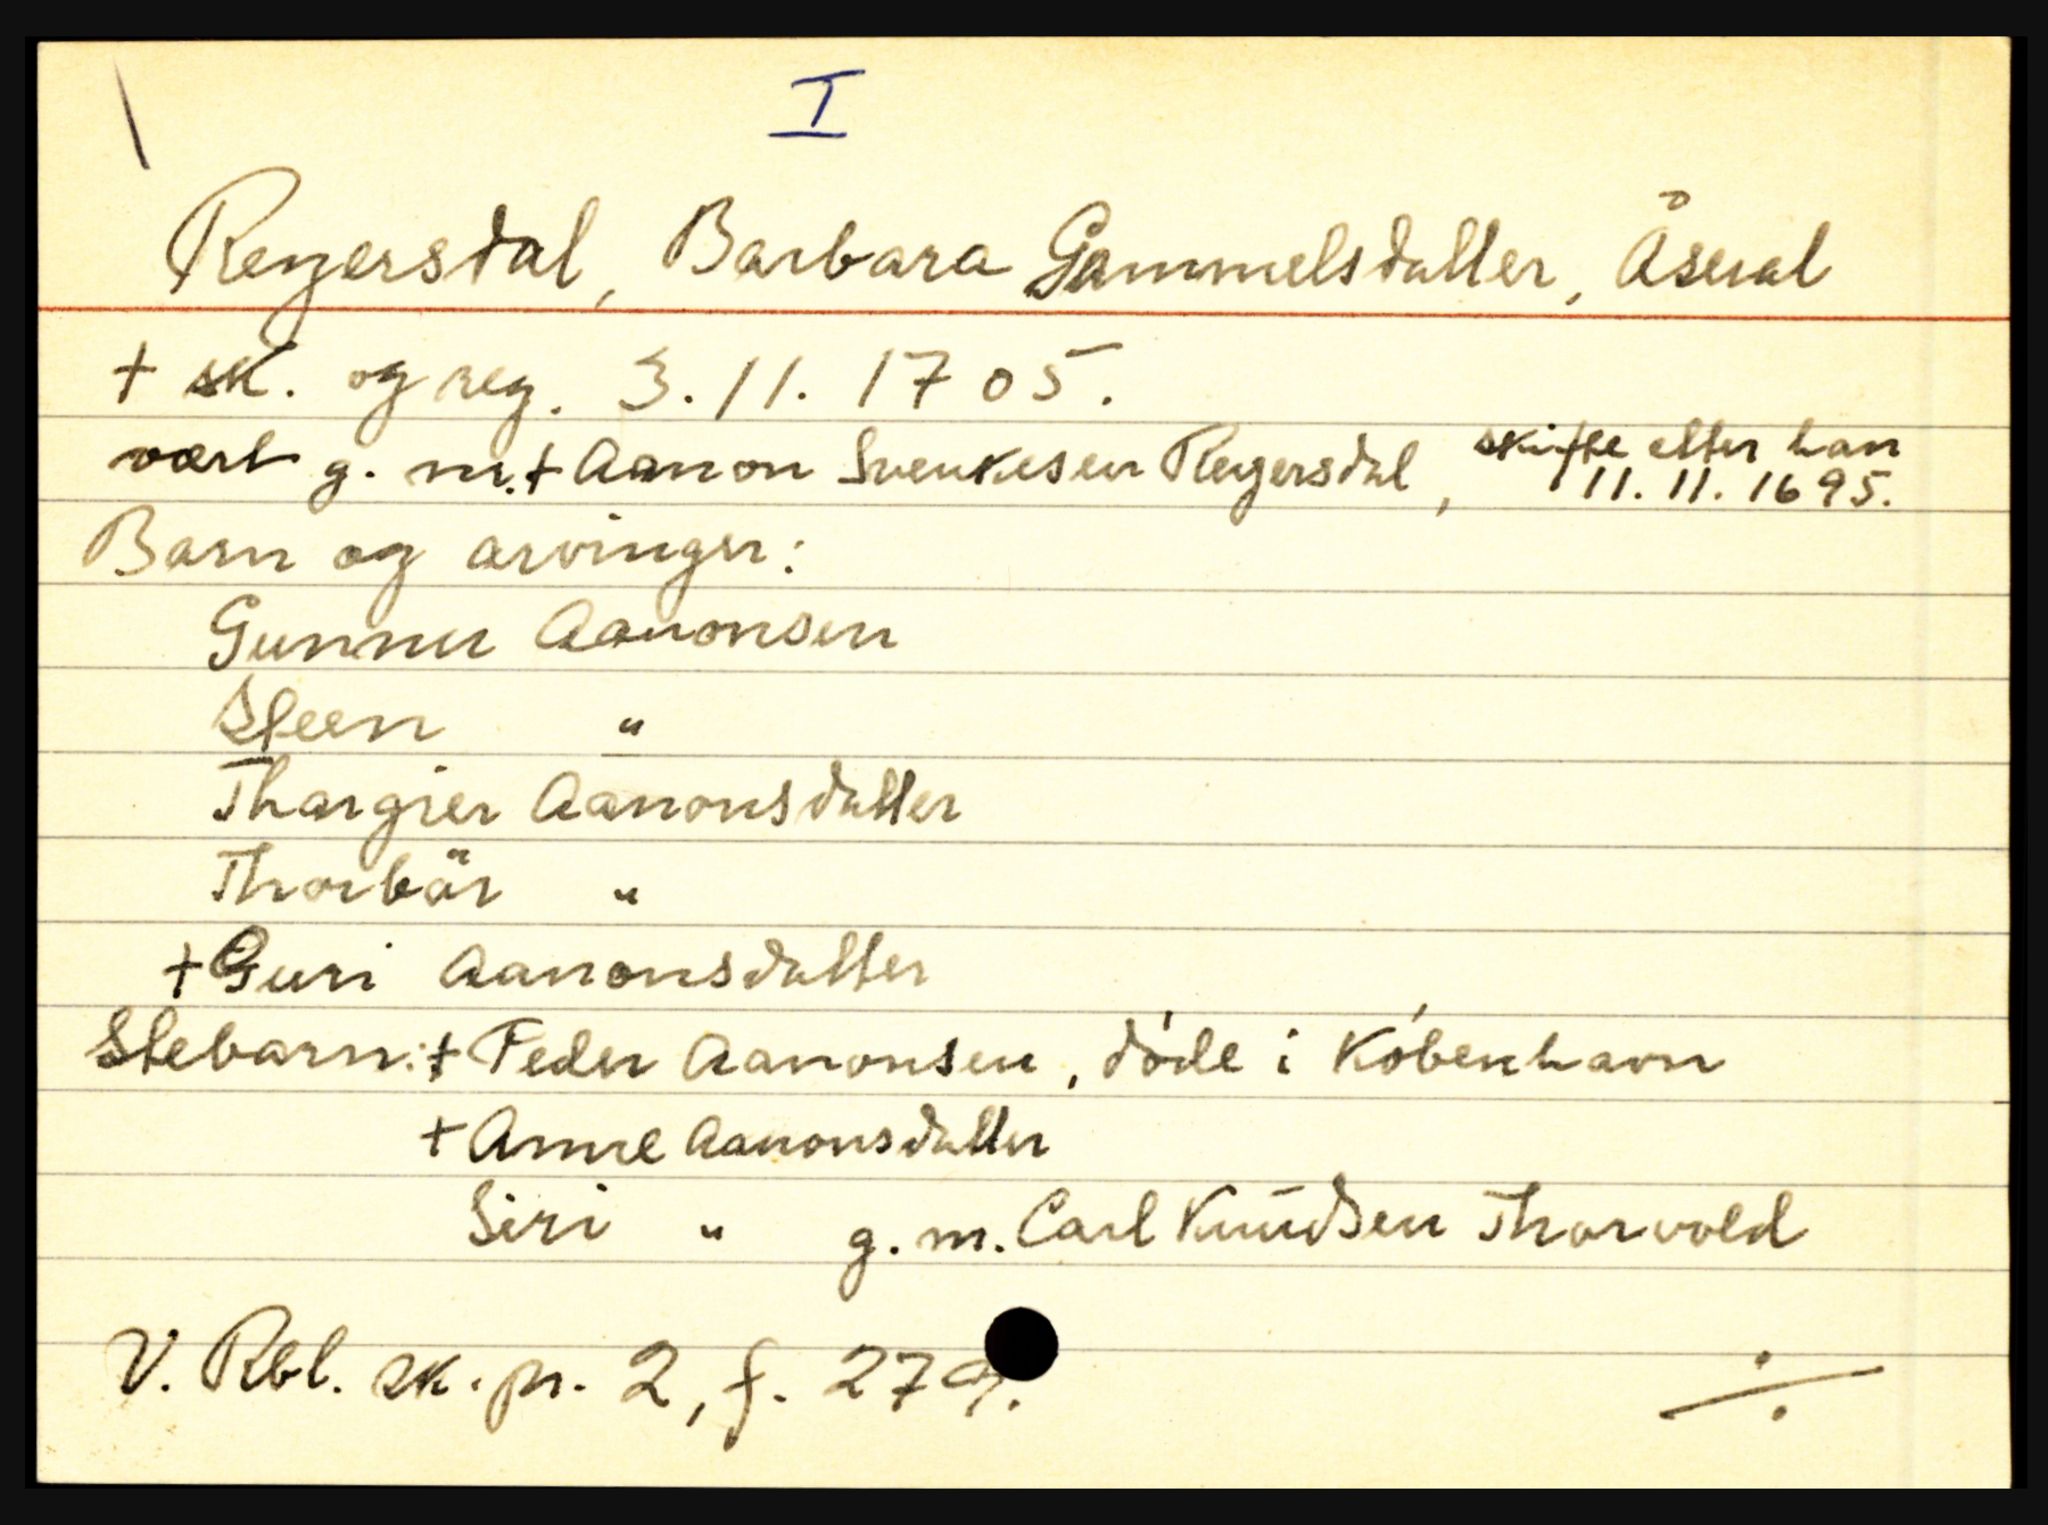 I
Reyersdal, Barbara Gammelsdatter, Åseral
+ sk. og reg. 3.11.1705.
vært g. m. + Aanon Svenkesen Reyersdal, skifte etter han
11.11.1695.
Barn og arvinger:
Gunner Aanonsen
Steen "
Thargier Aanonsdatter
Thorbär "
+ Guri Aanonsdatter
Stebarn: + Peder Aanonsen, døde i København
+ Anne Aanonsdatter
Siri " g. m. Carl Knudsen Thorvold
V. Rbl. sk. pr. 2, f. 279.
./.